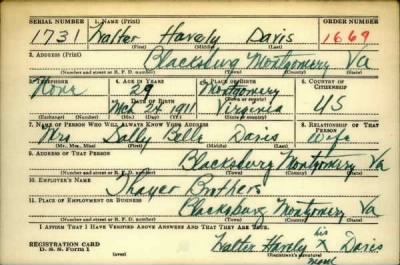 SERIAL NUMBER 1. NAME (Print) ORDER NUMBER
1731 Walter Havely Davis 1669
(First) (Middle) (Last)
2. ADDRESS (Print)
Blacksburg Montgomery Va
(Number and street or R. F. D. number) (Town) (County) (State)
3. TELEPHONE 4. AGE IN YEARS 5. PLACE OF BIRTH 6. COUNTRY OF CITIZENSHIP
None 29 Montgomery
DATE OF BIRTH (Town or county)
Mch 24 1911 Virginia US
(Exchange) (Number) (Mo.) (Day) (Yr.) (State or country)
7. NAME OF PERSON WHO WILL ALWAYS KNOW YOUR ADDRESS 8. RELATIONSHIP OF THAT PERSON
Mrs Sally Bell Davis Wife
(Mr., Mrs., Miss) (First) (Middle) (Last)
9. ADDRESS OF THAT PERSON
Blacksburg Montgomery Va
(Number and street or R. F. D. number) (Town) (County) (State)
10. EMPLOYER'S NAME
Thayer Brothers
11. PLACE OF EMPLOYMENT OR BUSINESS
Blacksburg Montgomery Va
(Number and street or R. F. D. number) (Town) (County) (State)
I AFFIRM THAT I HAVE VERIFIED ABOVE ANSWERS AND THAT THEY ARE TRUE.
REGISTRATION CARD
D. S. S. Form 1
his
Walter Havely X Davis
(Registrant's signature)
mark